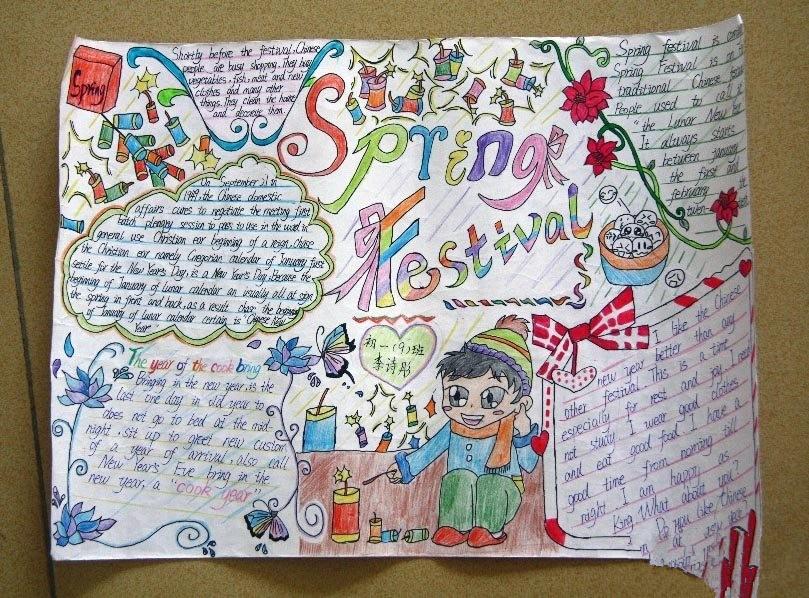 Spring
Shortly before the festival, Chinese
people are busy shopping. They buy
vegetables, fish, meat and new
clothes and many other
things. They clean the house
and
Spring
Festival
Spring festival is
Spring Festival is
traditional Chinese
People used to call it
"the Lunar New
It always starts
between january
the first and
february the
twen-
On September 21 in
1949, the Chinese domestic
affairs cures to negotiate the meeting first
batch plenary session to pass to use in the world in
general use Christian ear beginning of a reign, Chinese
the Christian ear namely Gregorian calendar of January first
settle for the New Year's Day, is a New Year's Day, Because the
beginning of January of lunar calendar an usually all at
the spring in front and back, as a result
of January of lunar calendar certain is "Chinese New
Year"
The year of the cook bring
Bringing in the new year, is the
last one day in old year to
does not go to bed at the mid-
night, sit up to greet new
of a year of arrival, also call
New Years' Eve bring in the
new year, a "cook year"
初一(9)班
李诗彤
I like the Chinese
new year better than any
other festival This is a time
especially for rest and joy I need
not study I wear good clothes
and eat good food I have a
good time from morning till
night I am happy as
King What about you?
Do you like Chinese
new year